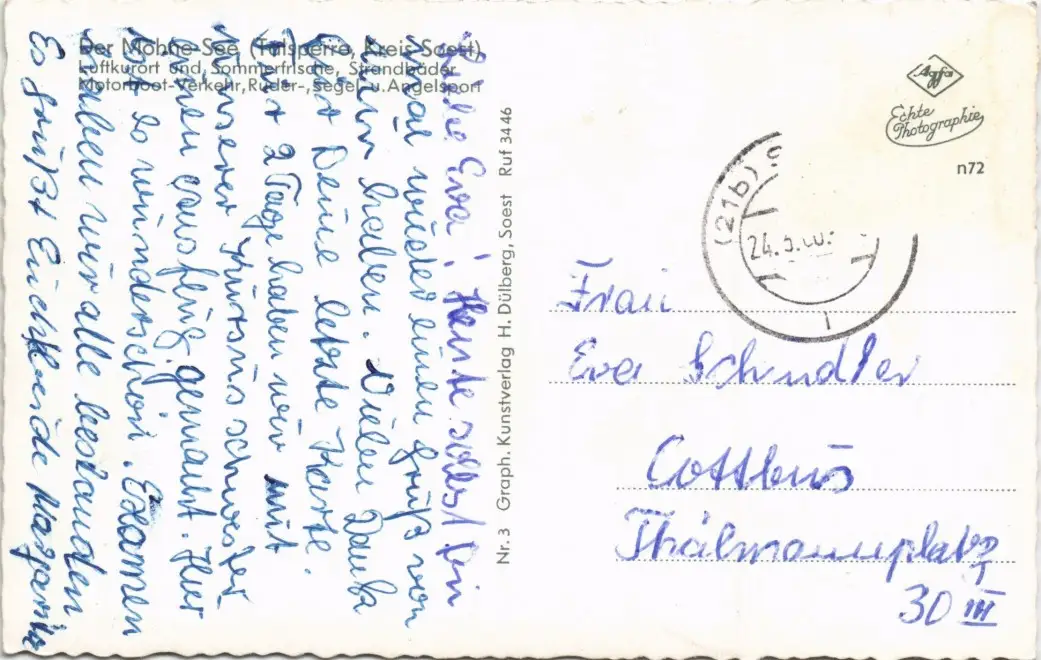 Der Möhne-See (Talsperre, Kreis Soest)
Luftkurort und Sommerfrische, Strandbäder
Motorboot-Verkehr, Ruder-, Segel- u. Angelsport
Liebe Eva! Heute sollst Du
mal wieder einen Gruß von
mir haben. Vielen Dank
für Deine letzte Karte.
Für 2 Tage haben wir mit
unserer Kursusschwester
einen Ausflug gemacht. Hier
ist es wunderschön. Examen
haben wir alle bestanden
Es grüßt Euch beide Margarita
Nr. 3 Graph. Kunstverlag H. Dülberg, Soest Ruf 3446
Agfa
Echte
Photographie
n72
(21b) S
24.5.60.
Frau
Eva Schindler
Cottbus
Thälmannplatz
30 III